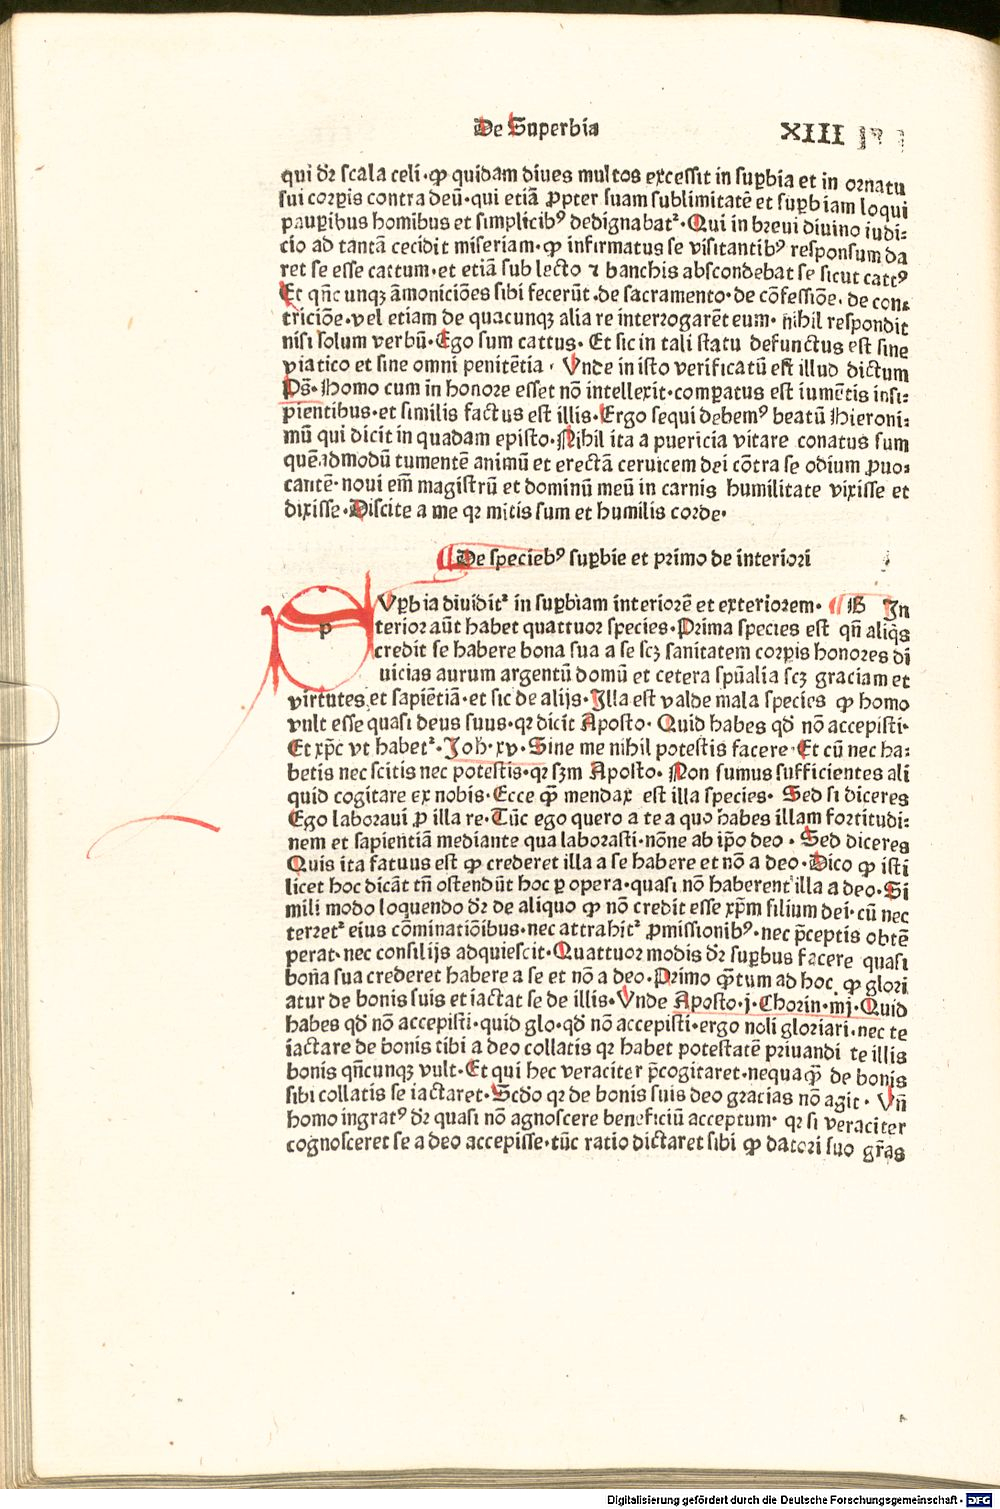 De Superbia
XIII
qui dr̄ scala celi·ꝙ quidam diues multos excessit in suꝑbia et in ornatu
sui corꝑis contra deū·qui etiā ꝓpter suam sublimitatē et suꝑbiam loqui
pauꝑibus homībus et simplicibꝰ dedignabatᷣ·Qui in breui diuino iudi⸗
cio ad tantā cecidit miseriam·ꝙ infirmatus se visitantibꝰ responsum da
ret se esse cattum·et etiā sub lecto ⁊ banchis abscondebat se sicut cattꝰ
Et qn̄cunqꝫ āmoniciōes sibi fecerūt·de sacramento·de cōfessiōe·de con⸗
triciōe·vel etiam de quacunqꝫ alia re interrogarēt eum·nihil respondit
nisi solum verbū·Ego sum cattus·Et sic in tali statu defunctus est sine
viatico et sine omni penitētia·Vnde in isto verificatū est illud dictum
Ps̄·Homo cum in honore esset nō intellexit·compatus est iumētis insi⸗
pientibus·et similis factus est illis·Ergo sequi debemꝰ beatū Hieroni⸗
mū qui dicit in quadam episto·Nihil ita a puericia vitare conatus sum
quēadmodū tumentē animū et erectā ceruicem dei cōtra se odium ꝓuo⸗
cantē·noui em̄ magistrū et dominū meū in carnis humilitate vixisse et
dixisse·Discite a me qꝛ mitis sum et humilis corde·
De speciebꝰ suꝑbie et primo de interiori
p
Vꝑbia diuiditᷣ in suꝑbiam interiorē et exteriorem· B In
terior aūt habet quattuor species·Prima species est qn̄ aliqs
credit se habere bona sua a se scꝫ sanitatem corꝑis honores di
uicias aurum argentū domū et cetera spūalia scꝫ graciam et
virtutes et sapiētiā·et sic de alijs·Illa est valde mala species ꝙ homo
vult esse quasi deus suus·qꝛ dicit Aposto·Quid habes qd̄ nō accepisti·
Et xp̄c vt habetᷣ·Joh·xv·Sine me nihil potestis facere·Et cū nec ha⸗
betis nec scitis nec potestis·qꝛ sꝫm Aposto·Non sumus sufficientes ali
quid cogitare ex nobis·Ecce ꝙ̄ mendax est illa species·Sed si diceres
Ego laboraui ꝓ illa re·Tūc ego quero a te a quo habes illam fortitudi⸗
nem et sapientiā mediante qua laborasti·nōne ab ip̄o deo·Sed diceres
Quis ita fatuus est ꝙ crederet illa a se habere et nō a deo·Dico ꝙ isti
licet hoc dicāt tn̄ ostendūt hoc ꝑ opera·quasi nō haberent illa a deo·Si
mili modo loquendo dr̄ de aliquo ꝙ nō credit esse xp̄m filium dei·cū nec
terretᷣ eius cōminatiōibus·nec attrahitᷣ ꝓmissionibꝰ·nec p̄ceptis obtē
perat·nec consilijs adquiescit·Quattuor modis dr̄ suꝑbus facere quasi
bona sua crederet habere a se et nō a deo·Primo ꝙ̄tum ad hoc ꝙ glori
atur de bonis suis et iactat se de illis·Vnde Aposto·j·Chorin·iiij·Quid
habes qd̄ nō accepisti·quid glo·qd̄ nō accepisti·ergo noli gloriari·nec te
iactare de bonis tibi a deo collatis qꝛ habet potestatē priuandi te illis
bonis qn̄cunqꝫ vult·Et qui hec veraciter p̄cogitaret·nequaꝙ̄ de bonis
sibi collatis se iactaret·Scd̄o qꝛ de bonis suis deo gracias nō agit·Vn̄
homo ingratꝰ dr̄ quasi nō agnoscere beneficiū acceptum·qꝛ si veraciter
cognosceret se a deo accepisse·tūc ratio dictaret sibi ꝙ datori suo gr̄as
Digitalisierung gefördert durch die Deutsche Forschungsgemeinschaft - DFG